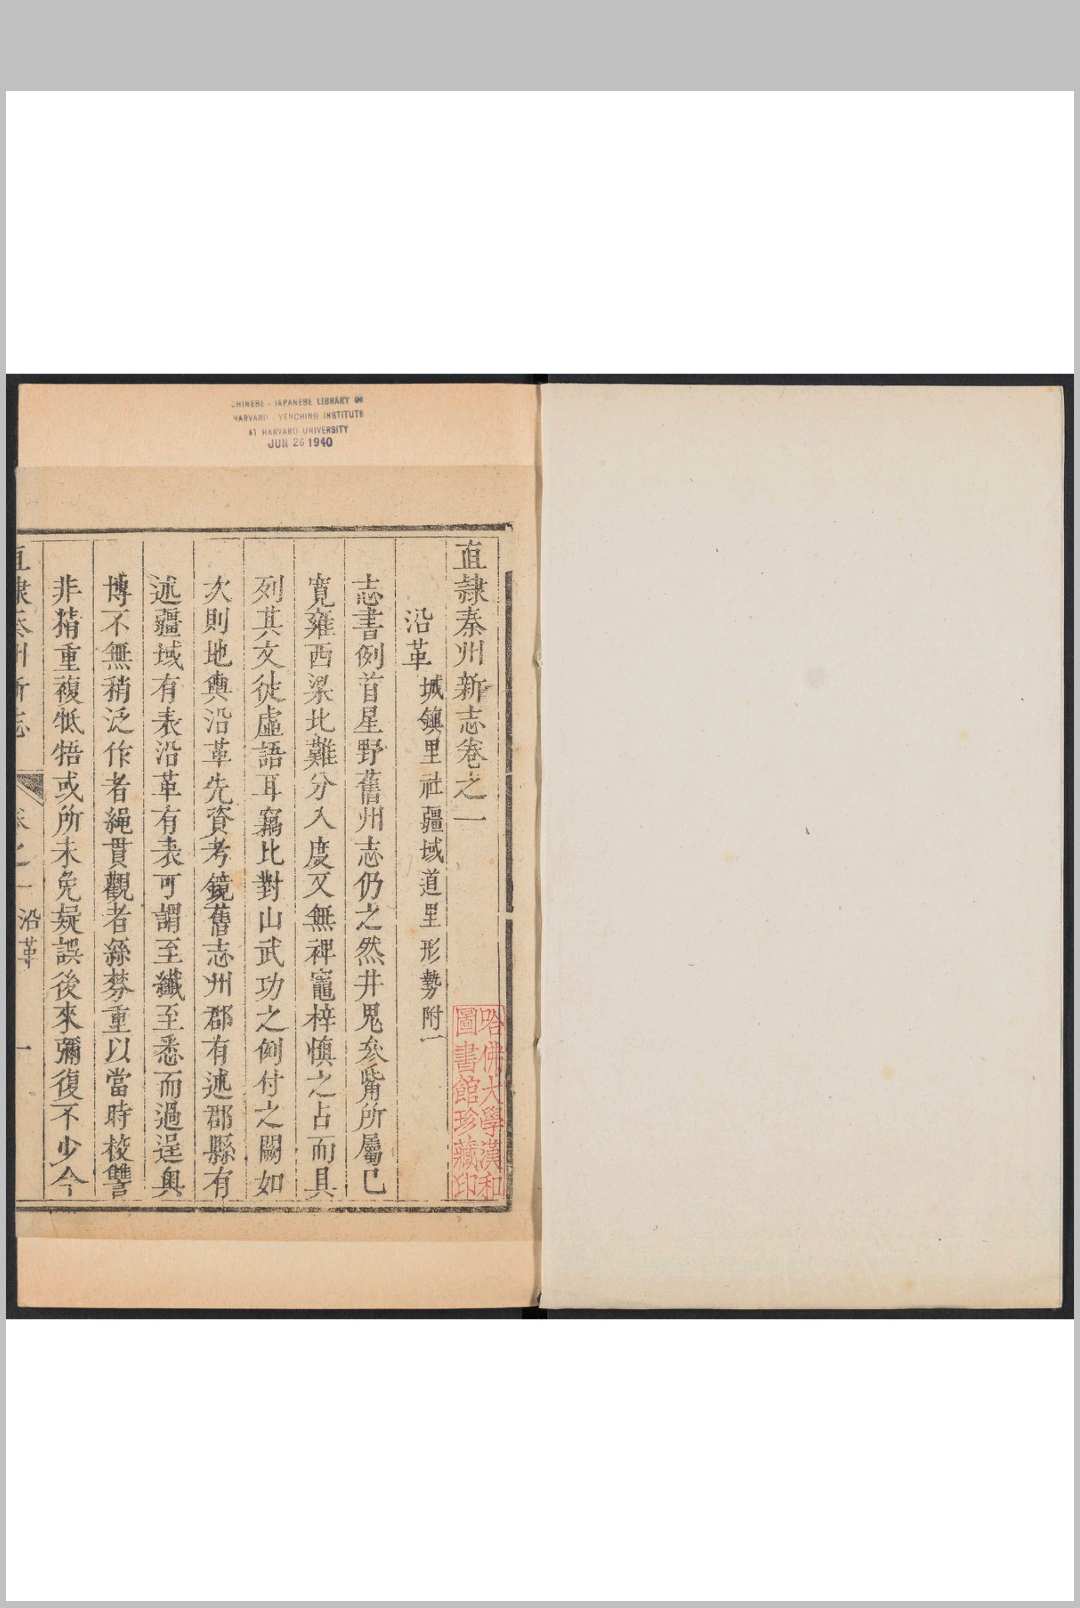 CHINESE - JAPANESE LIBRARY OF
HARVARD - YENCHING INSTITUTE
AT HARVARD UNIVERSITY
JUN 26 1940
直隸秦州新志卷之一
沿革 城鎮里社疆域道里形勢附一
志書例首星野舊州志仍之然井鬼參觜所屬已
寛雍西梁比難分入度又無裨竈梓慎之占而具
列其文徒虛語耳竊比對山武功之例付之闕如
次則地輿沿革先資考鏡舊志州郡有述郡縣有
述疆域有表沿革有表可謂至纖至悉而過逞奥
博不無稍泛作者繩貫觀者絲棼重以當時校讐
非精重複牴牾或所未免疑誤後來彌復不少今
直隸秦州新志 卷之一 沿革 一
哈佛大學漢和
圖書館珍藏印